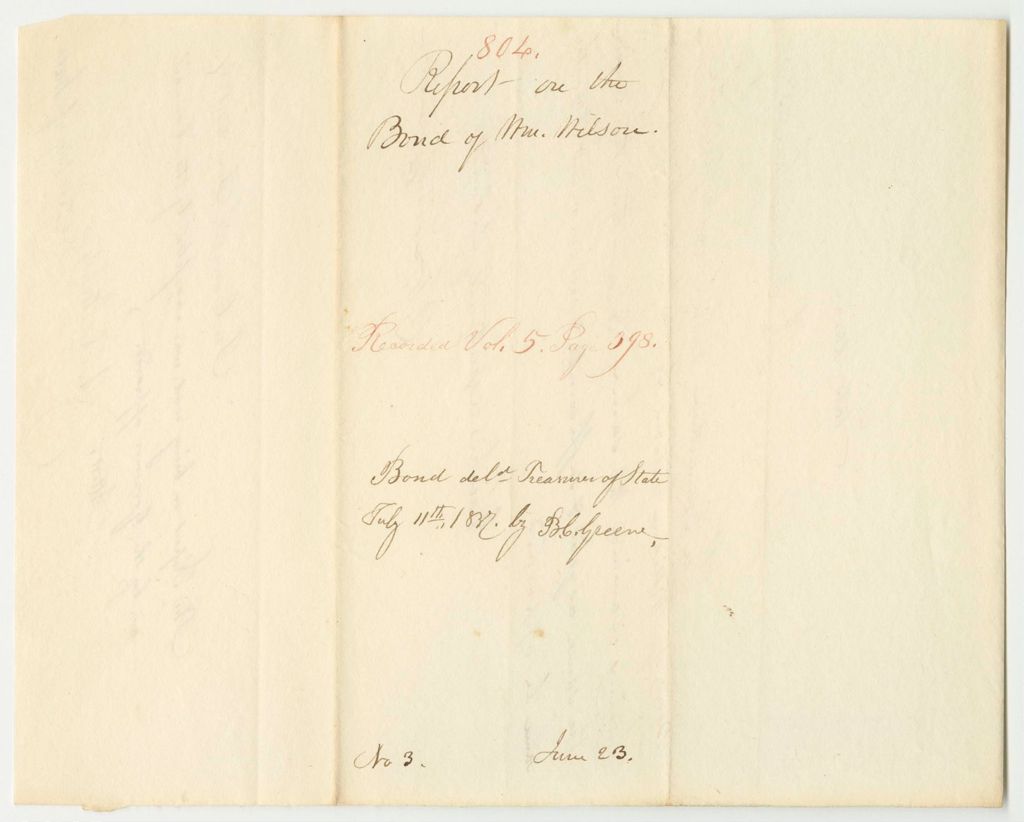 804.
Report on the
Bond of Wm. Wilson.
Recorded Vol. 5. Page 398.
Bond deld Treasurer of State
July 11th, 1837. by B.C. Greene,
No 3. June 23.